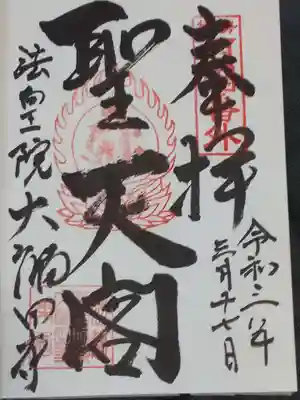 奉拝
令和二年
三月十七日
聖天閣
法皇院大福田寺